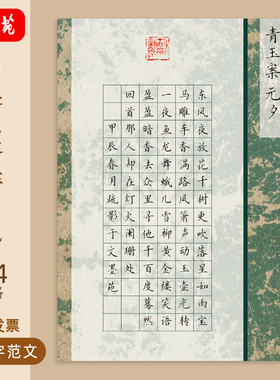 青玉案 元夕
东风夜放花千树更吹落星如雨宝
马雕车香满路凤箫声动玉壶光转
一夜鱼龙舞蛾儿雪柳黄金缕笑语
盈盈暗香去众里寻他千百度蓦然
回首那人却在灯火阑珊处
甲辰春月疏影于文墨苑
苑
4
发票
字范文